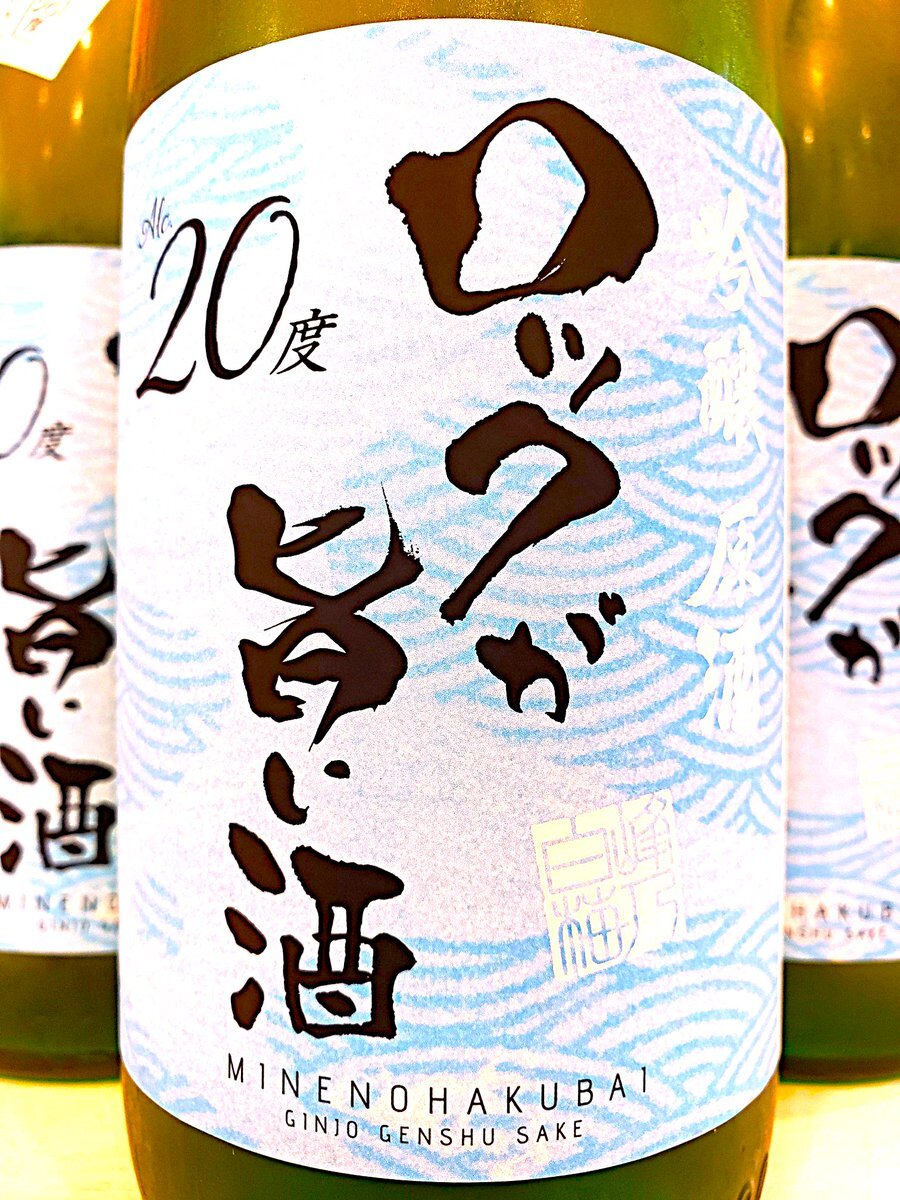 吟醸原酒
ロックが
旨い酒
Alc.
20度
峰乃
白梅
MINENOHAKUBAI
GINJO GENSHU SAKE
度
旨い酒
MINENO
GINJO
ロックが
HAKUB
SHU SAKE